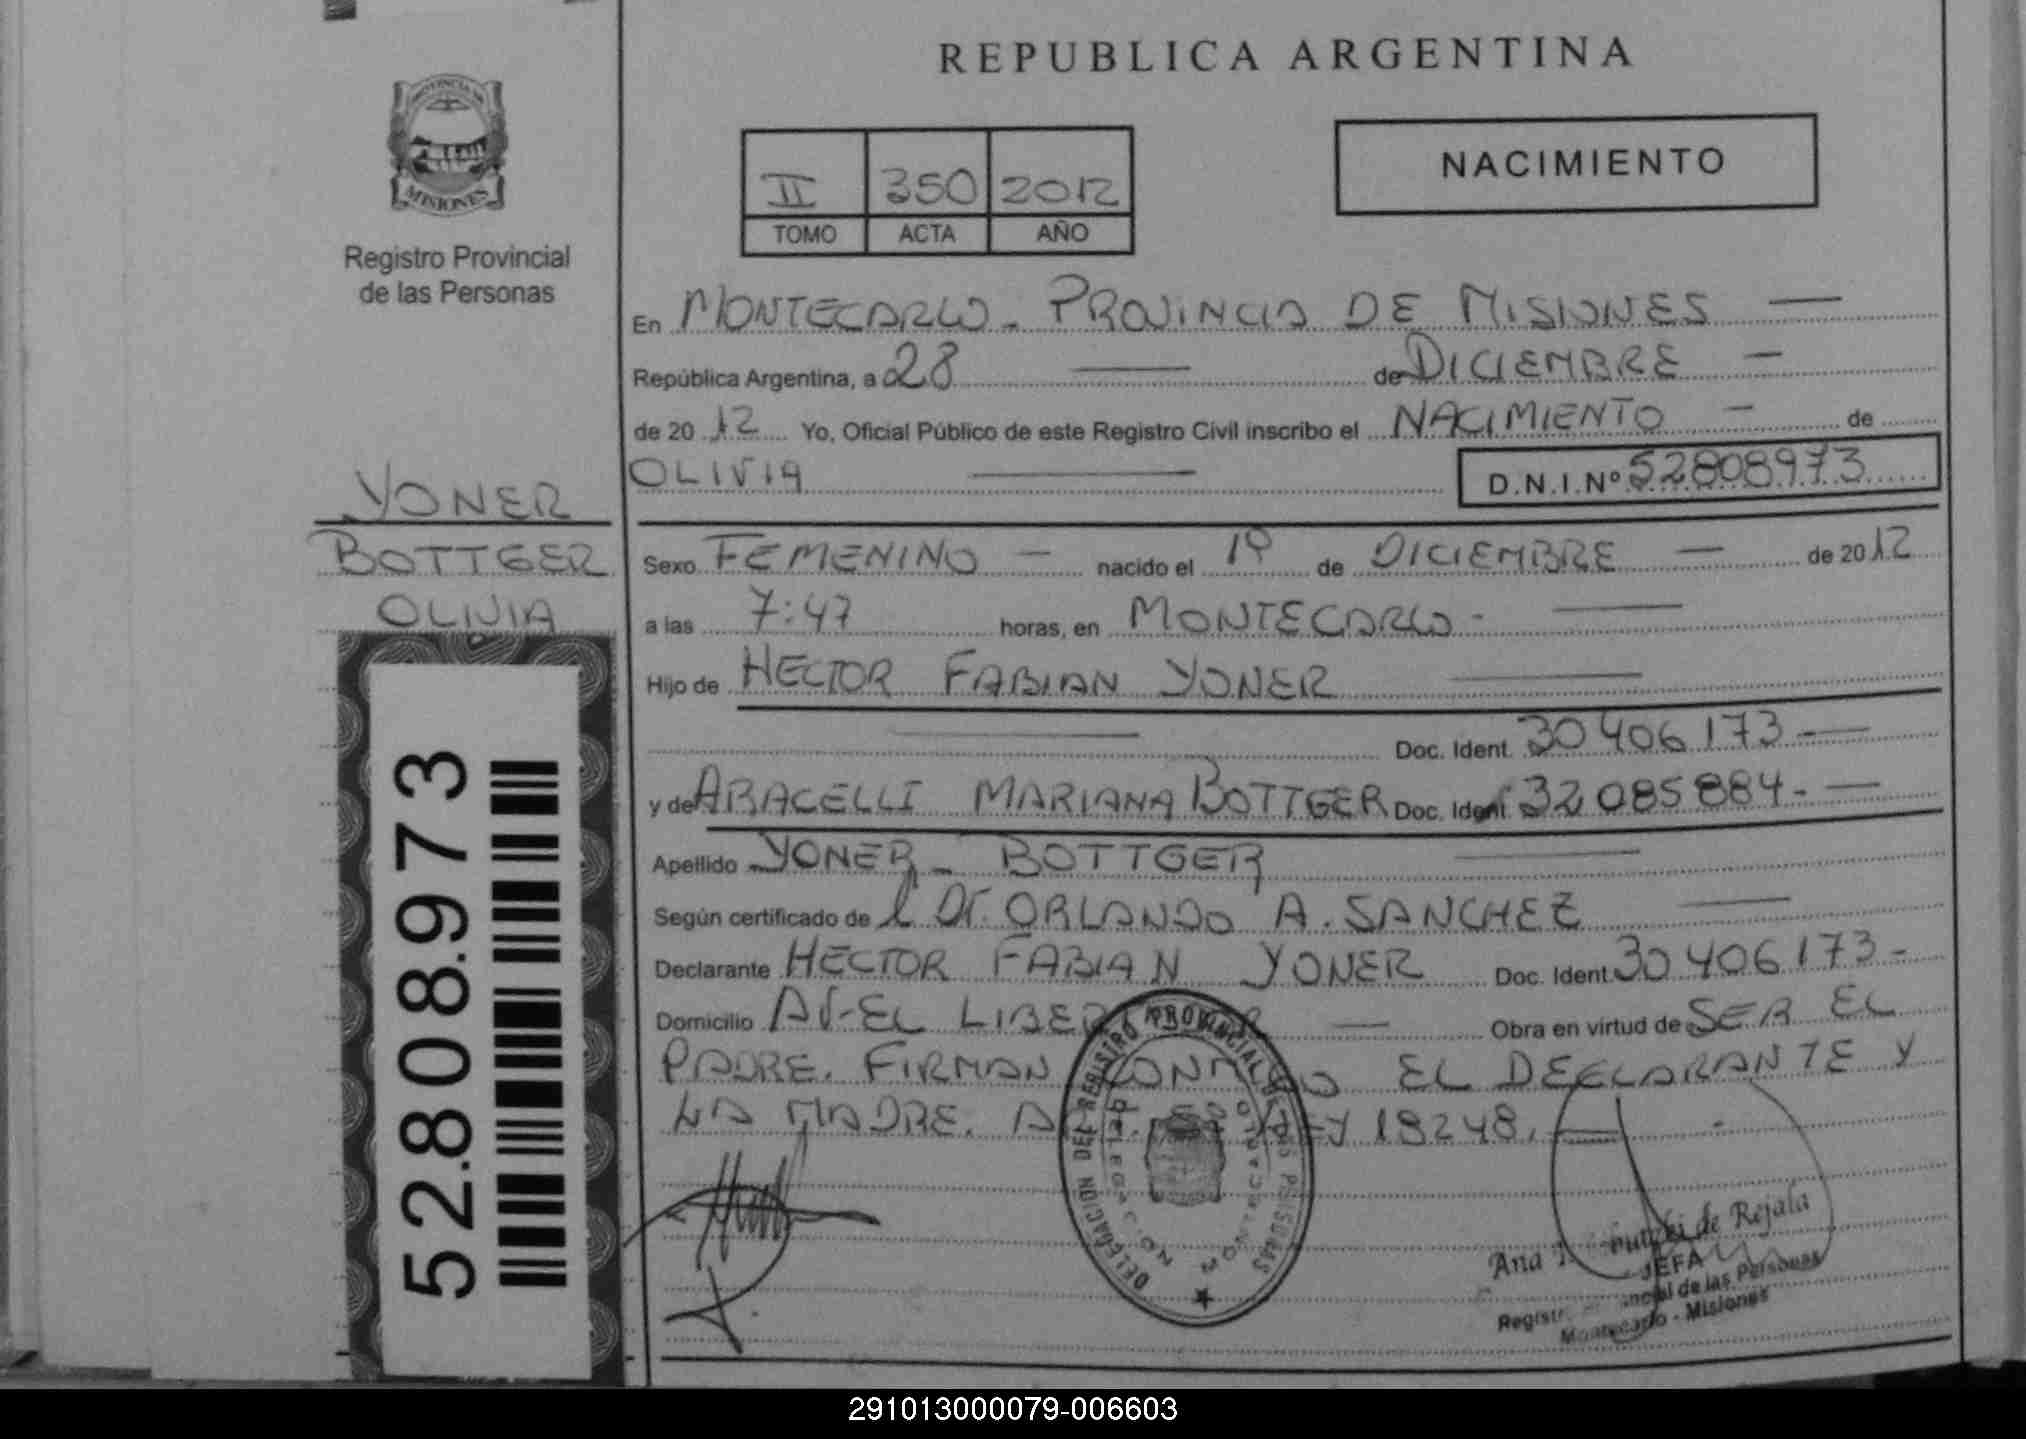 REPUBLICA ARGENTINA
PROVINCIA DE
MISIONES
Registro Provincial
de las Personas
II 350 2012
TOMO ACTA AÑO
NACIMIENTO
En MONTECARLO - PROVINCIA DE MISIONES —
República Argentina, a 28 — de DICIEMBRE —
de 20 12 Yo, Oficial Público de este Registro Civil inscribo el NACIMIENTO — de
OLIVIA — D.N.I.Nº 52808973
YONER
BOTTGER
OLIVIA
52.808.973
Sexo FEMENINO — nacido el de DICIEMBRE — de 2012
a las 7:47 horas, en MONTECARLO - —
Hijo de HECTOR FABIAN YONER —
— Doc. Ident. 30406173 - —
y de ARACELLI MARIANA BOTTGER Doc. Ident. 32085884 - —
Apellido YONER - BOTTGER —
Según certificado de l Dr. ORLANDO A. SANCHEZ —
Declarante HECTOR FABIAN YONER Doc. Ident. 30406173 -
Domicilio AV-EL — Obra en virtud de SER EL
PADRE. FIRMAN CONMIGO EL DECLARANTE Y
LA MADRE. 18248. —
DELEGACION DEL REGISTRO PROVINCIAL DE LAS PERSONAS
Ana de Rejala
JEFA
de las Personas
Montecarlo - Misiones
291013000079-006603